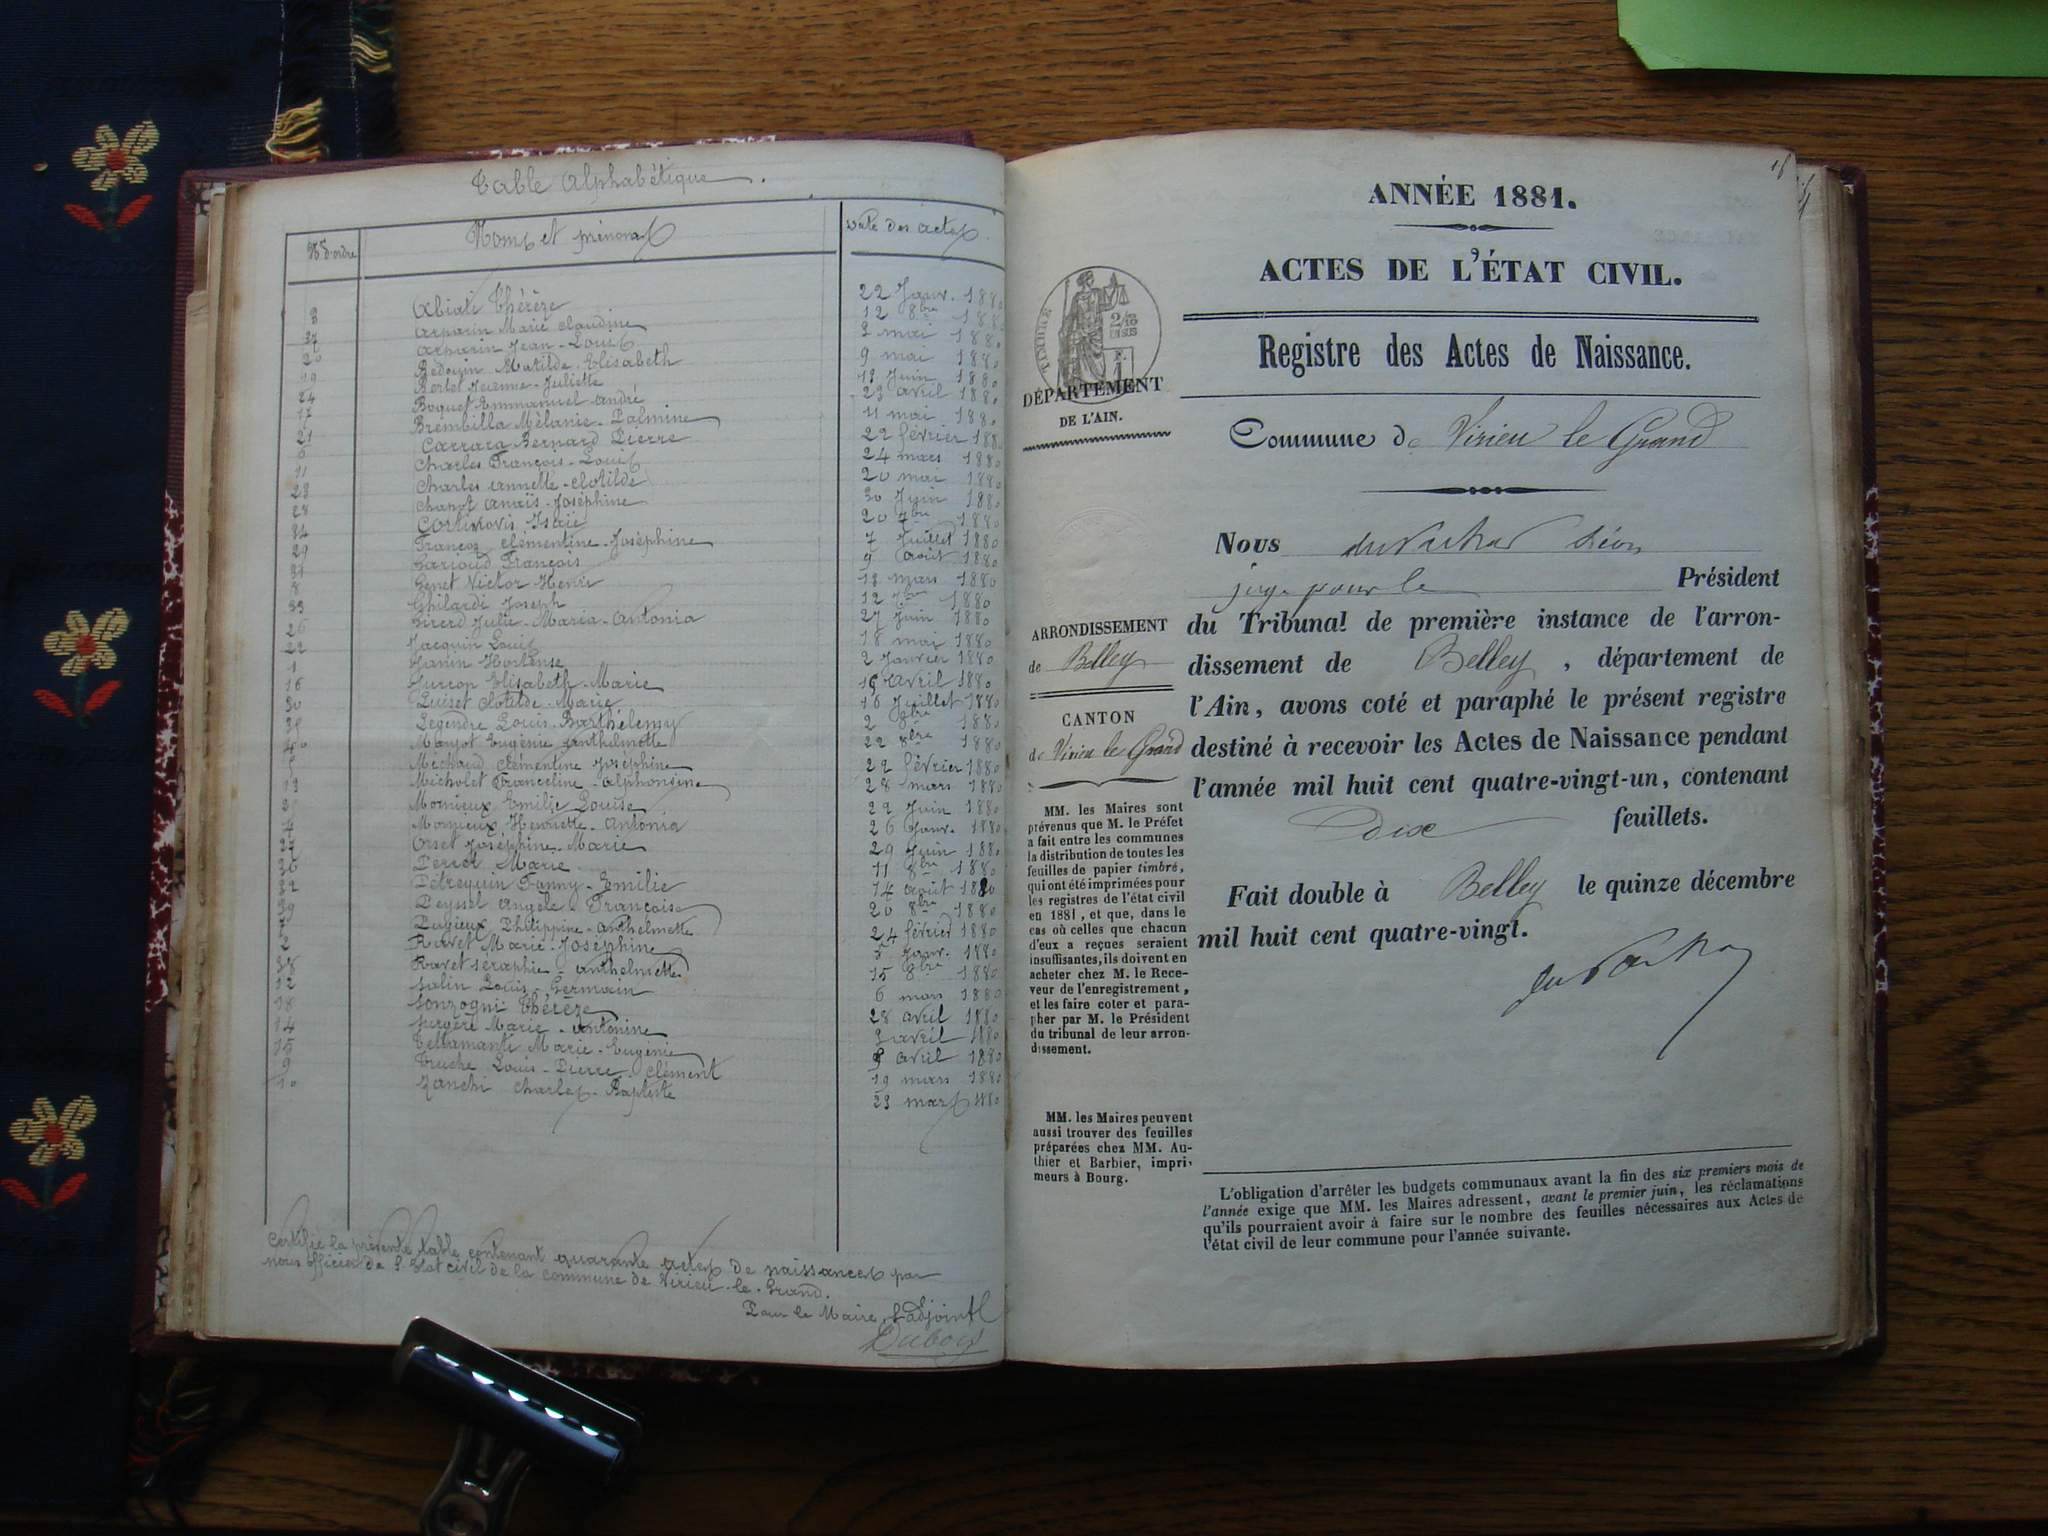 Table Alphabétique.
Nos d'ordre
Noms et prénoms
Date des actes
3 Abiati Thérèze 22 Janv. 1880
37 Arparin Marie Claudine 12 8bre 1880
20 Arparin Jean-Louis 2 mai 1880
19 Bedouin Matilde-Elisabeth 9 mai 1880
24 Bertet Jeanne-Juliette Juin 1880
17 Boquet Emmanuel-André 23 avril 1880
21 Brembilla Mélanie-Palmine 11 mai 1880
6 Carrara Bernard Pierre 22 février 1880
11 Charles François-Louis 24 mars 1880
23 Charles Annette-Clotilde 20 mai 1880
28 Chapot Anaïs-Joséphine 30 Juin 1880
34 Cortinovis Isaïe 20 7bre 1880
29 Françon Clémentine-Joséphine 7 Juillet 1880
31 Garioud François 9 août 1880
8 Genet Victor Henri 13 mars 1880
33 Ghilardi Joseph 12 7bre 1880
26 Girerd Julie-Maria-Antonia 27 Juin 1880
22 Jacquin Louis 18 mai 1880
1 Janin Hortense 2 Janvier 1880
16 Jurron Elisabeth-Marie avril 1880
30 Quiset Clotilde-Marie 16 Juillet 1880
35 Legendre Louis-Barthélemy 2 8bre 1880
40 Marjot Eugénie Anthelmette 22 8bre 1880
Michaud Clémentine Joséphine 22 février 1880
13 Micholet Franceline-Alphonsine 28 mars 1880
25 Mornieux Emilie Louise 22 Juin 1880
4 Mornieux Henriette-Antonia 26 Janv. 1880
27 Orset Joséphine-Marie 29 Juin 1880
36 Perret Marie 11 8bre 1880
32 Pétrequin Fanny-Emilie 14 août 1880
39 Peyssel Angèle-Françoise 20 8bre 1880
Pugieux Philippine-Anthelmette 24 février 1880
2 Ravet Marie-Joséphine 5 Janv. 1880
38 Ravet Séraphie-Anthelmette 15 8bre 1880
12 Salin Louis-Germain 6 mars 1880
18 Sonzogni Thérèze 28 avril 1880
14 Surgère Marie-Antonine 3 avril 1880
15 Testamanti Marie-Eugénie avril 1880
9 Truche Louis-Pierre-Clément 19 mars 1880
10 Zanchi Charles-Baptiste 23 mars 1880
Certifié la présente table contenant quarante actes de naissances par
nous officier de l'Etat civil de la commune de Virieu-le-Grand.
Pour le Maire, l'adjoint
Dubois
ANNÉE 1881.
ACTES DE L'ÉTAT CIVIL.
Registre des Actes de Naissance.
TIMBRE
2/10
EN SUS
DÉPARTEMENT
DE L'AIN.
Commune de Virieu le Grand
Nous
juge pour le Président
du Tribunal de première instance de l'arron-
dissement de Belley, département de
l'Ain, avons coté et paraphé le présent registre
destiné à recevoir les Actes de Naissance pendant
l'année mil huit cent quatre-vingt-un, contenant
Dix feuillets.
Fait double à Belley le quinze décembre
mil huit cent quatre-vingt.
ARRONDISSEMENT
de Belley
CANTON
de Virieu le Grand
MM. les Maires sont
prévenus que M. le Préfet
a fait entre les communes
la distribution de toutes les
feuilles de papier timbré,
qui ont été imprimées pour
les registres de l'état civil
en 1881, et que, dans le
cas où celles que chacun
d'eux a reçues seraient
insuffisantes, ils doivent en
acheter chez M. le Rece-
veur de l'enregistrement,
et les faire coter et para-
pher par M. le Président
du tribunal de leur arron-
dissement.
MM. les Maires peuvent
aussi trouver des feuilles
préparées chez MM. Au-
thier et Barbier, impri-
meurs à Bourg.
L'obligation d'arrêter les budgets communaux avant la fin des six premiers mois de
l'année exige que MM. les Maires adressent, avant le premier juin, les réclamations
qu'ils pourraient avoir à faire sur le nombre des feuilles nécessaires aux Actes de
l'état civil de leur commune pour l'année suivante.